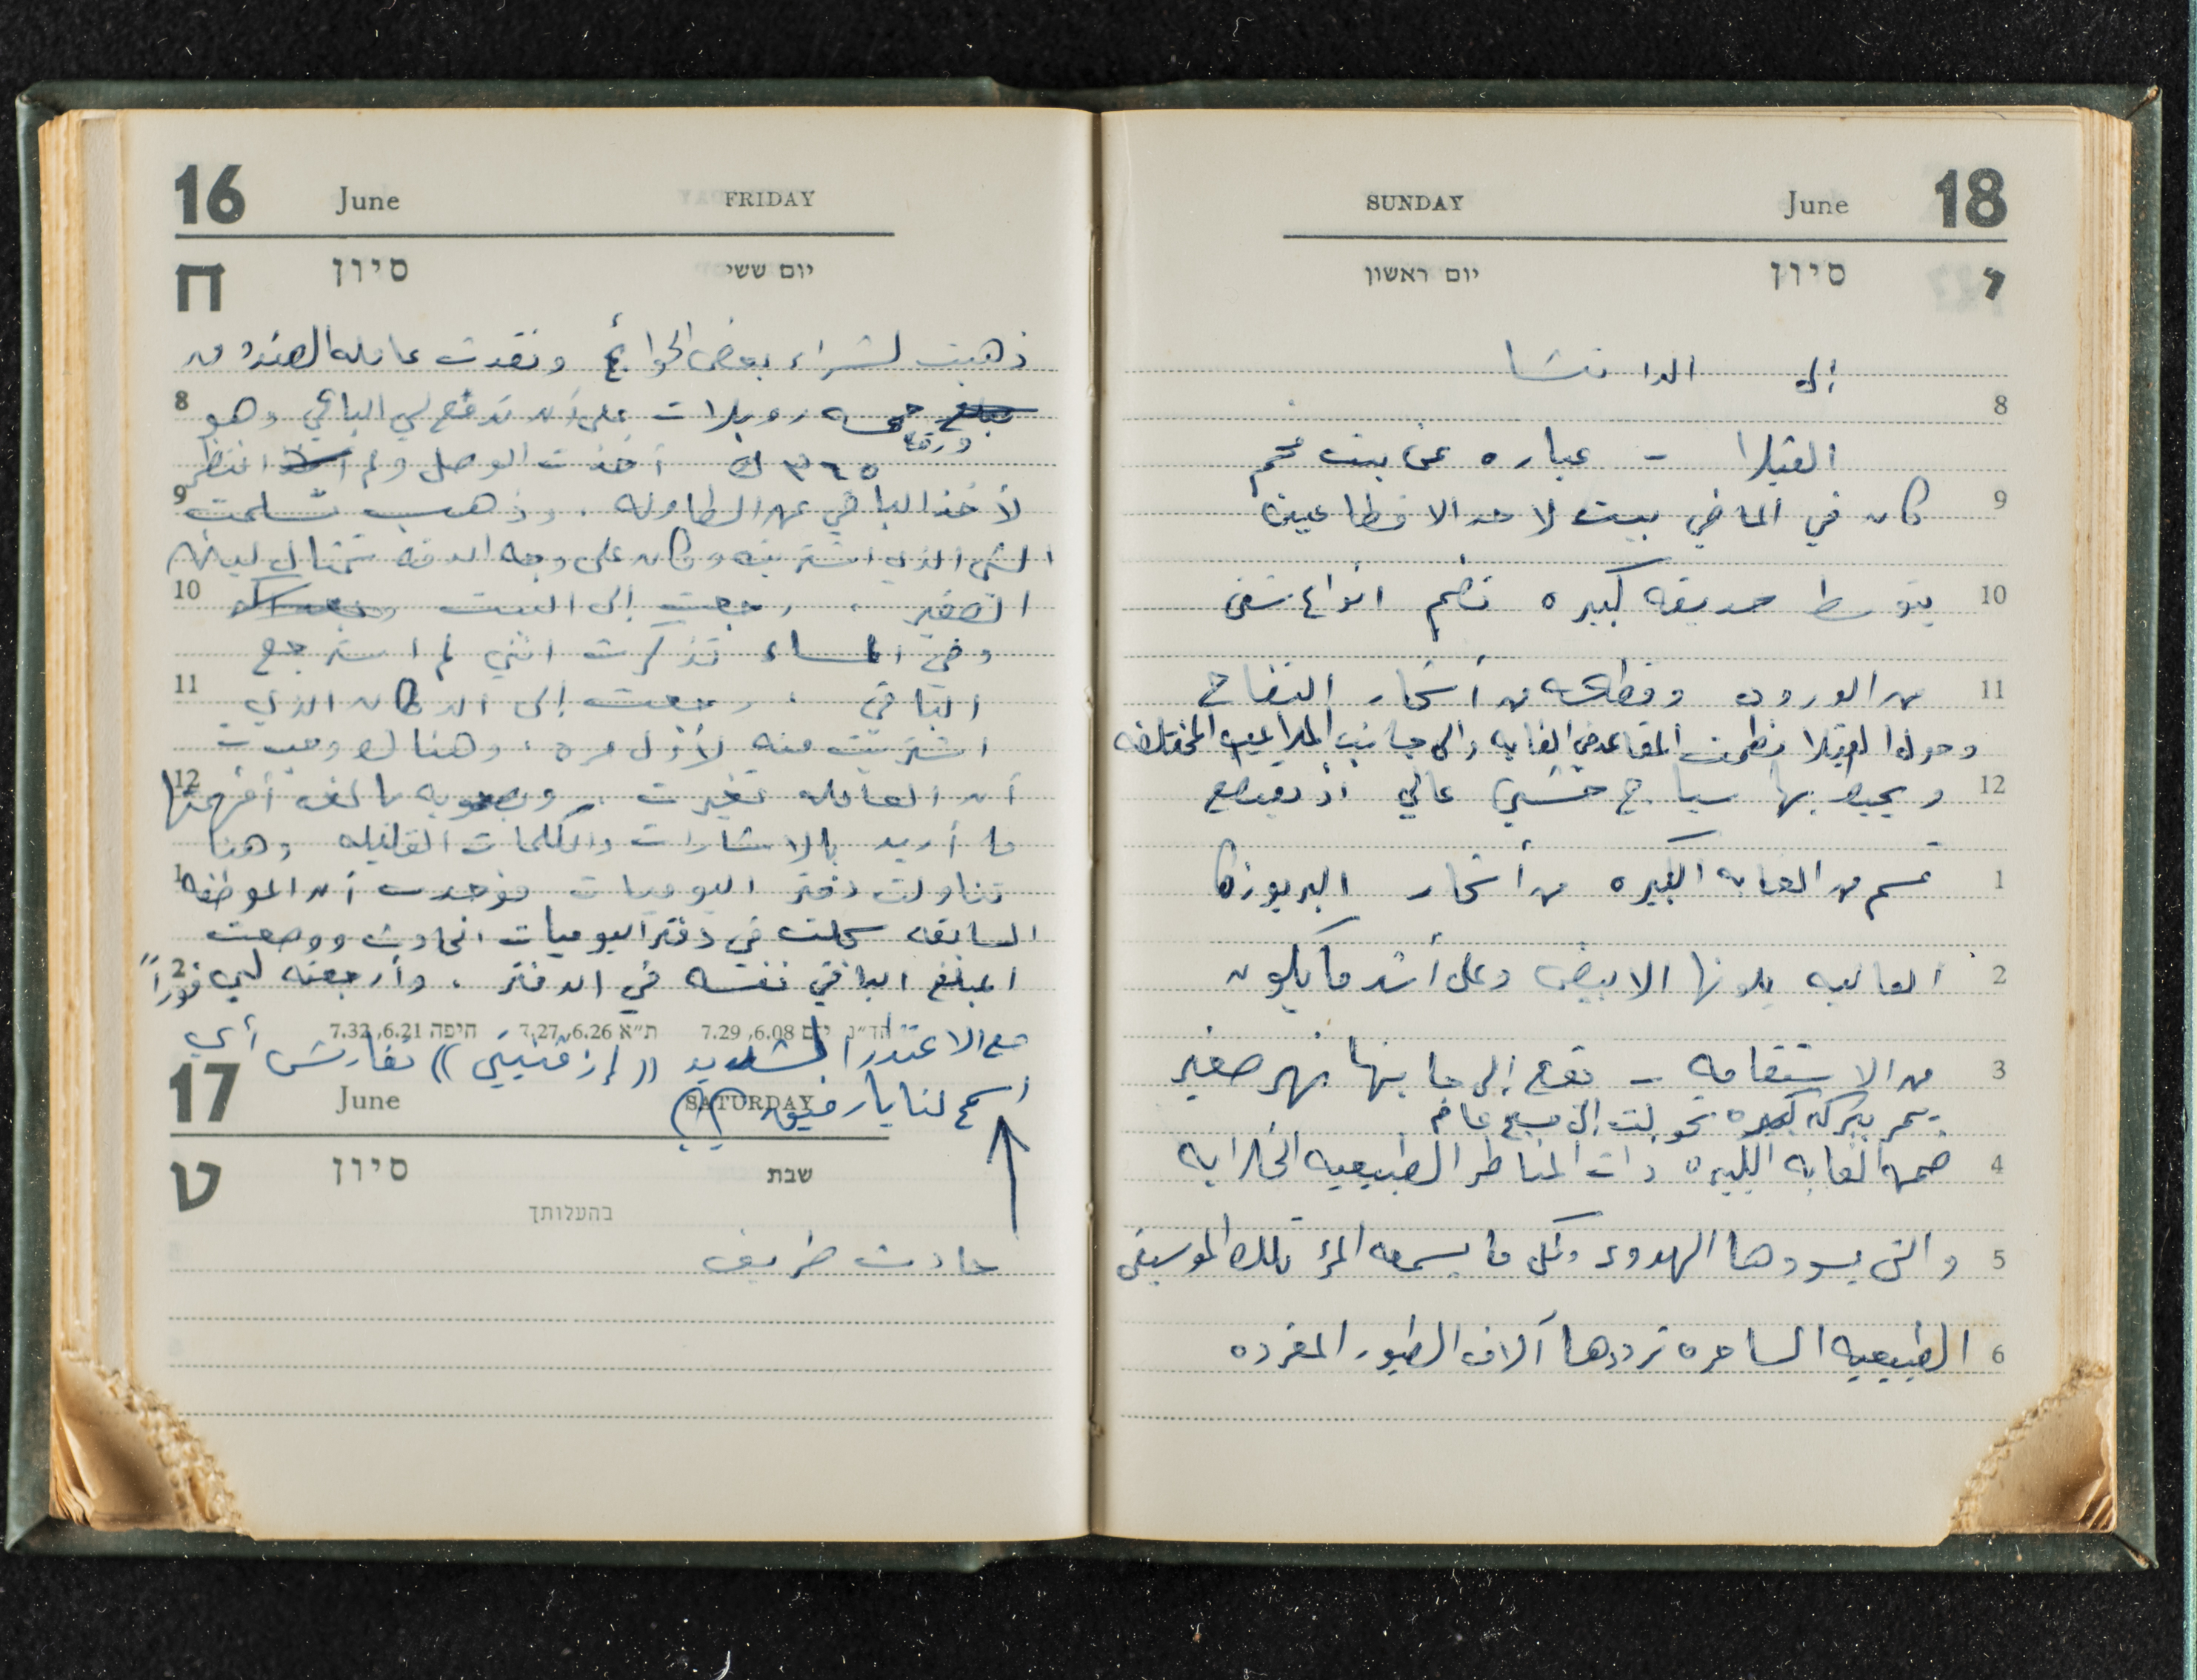 16 June FRIDAY
ח סיון יום ששי
ذهبت لشراء بعض الحوائج ونقدت عامله الصندوق
8 مبلغ خمسه روبلات على أن تدفع لي الباقي وهو
ورقة
٣٦٥ ك أخذت الوصل ولم انتظر
9 لأخذ الباقي عن الطاوله . وذهبت تسلمت
الشي الذي اشتريته وكان على وجه الدقه تمثال لينين
10 الصغير . رجعت إلى البيت
وفي المساء تذكرت انني لم استرجع
11 الباقي . رجعت إلى الدكان الذي
اشتريت منه لأول مره ، وهناك وجدت
12 أن العامله تغيرت . وبصعوبه بالغه أفهمتها
ما أريد بالاشارات والكلمات القليله وهنا
1 تناولت دفتر اليوميات فوجدت أن الموظفه
السابقه سجلت في دفتر اليوميات الحادث ووضعت
2 المبلغ الباقي نفسه في الدفتر . وأرجعته لي فوراً
הד״נ ים 6.08, 7.29 ת״א 6.26, 7.27 חיפה 6.21, 7.32
مع الاعتذار الشديد ((إزفنيني)) تفارتش أي
اسمح لنا يا رفيق (!)
17 June SATURDAY
ט סיון שבת
בהעלותך
حادث ظريف
SUNDAY June 18
יום ראשון סיון י
إلى الداتشا
8
الفيلا - عباره عن بيت فخم
9 كان في الماضي بيت لاحد الاقطاعيين
10 يتوسط حديقه كبيره تضم انواع شتى
11 من الورود وقطعه من أشجار التفاح
وحول الفيلا نظمت المقاعد في الغابه والى جانب الملاعب المختلفه
12 ويحيط بها سياج خشبي عالي اذ يقتطع
1 قسم من الغابه الكبيره من أشجار البريوزكا
2 العاليه بلونها الابيض وعلى أشد ما يكون
3 من الاستقامه - تقع إلى جانبها نهر صغير
يمر ببركه كبيره تحولت إلى مسبح عام
4 ضمن الغابه الكبيره ذات المناظر الطبيعيه الخلابه
5 والتي يسودها الهدوء وكل ما يسمعه المرء تلك الموسيقى
6 الطبيعيه الساحره ترددها آلاف الطيور المغرده